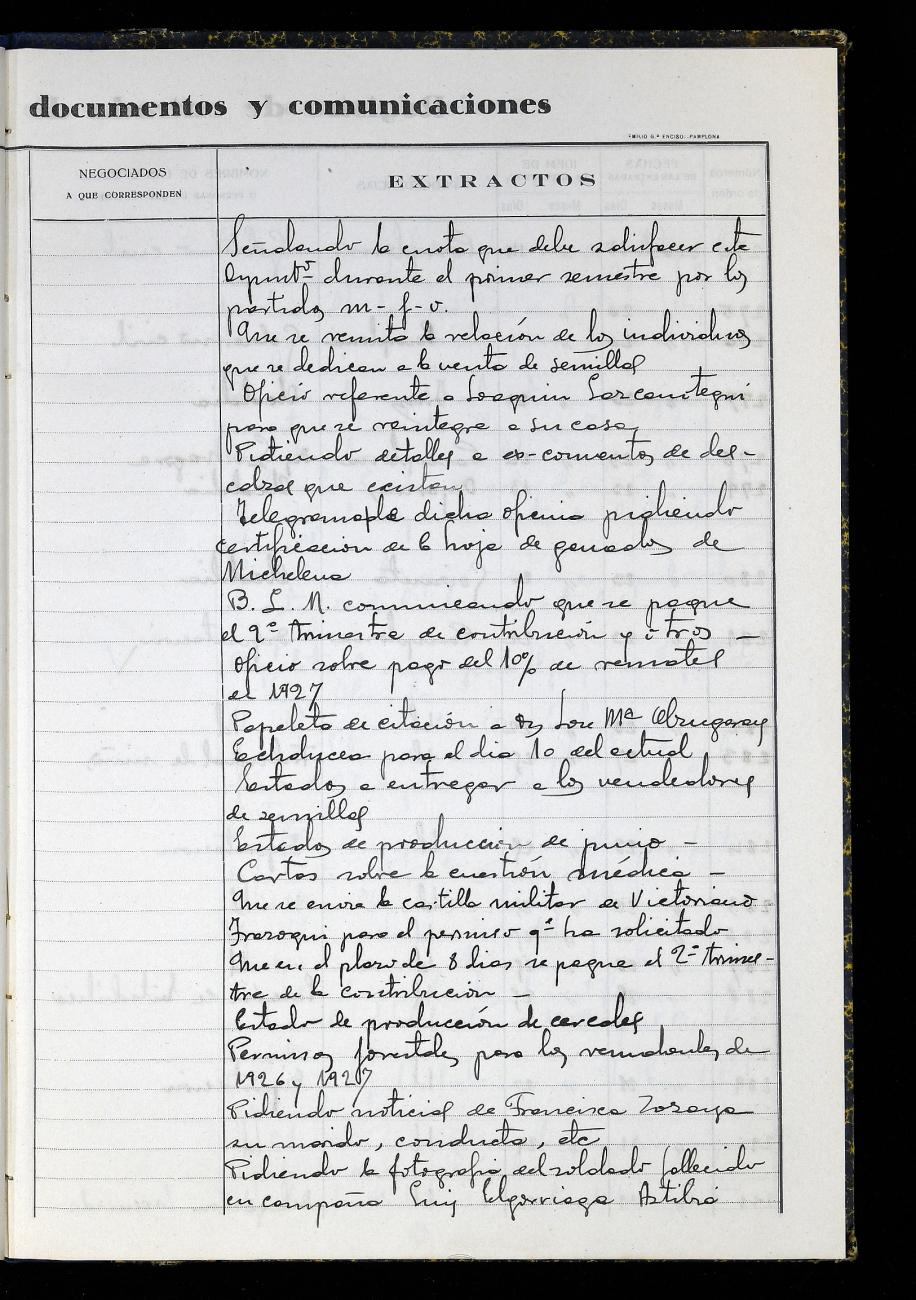 documentos y comunicaciones
EMILIO G.ª ENCISO.-PAMPLONA
NEGOCIADOS
A QUE CORRESPONDEN
EXTRACTOS
Señalando la cuota que debe satisfacer este
Ayuntº durante el primer semestre por los
partidas m- f- v.
Que se remita la relación de los individuos
que se dedican a la venta de semillas
Oficio referente a Joaquin
para que se reintegre a su casa
Pidiendo detalles a ex-conventos de des-
calzas que existan
Telegrama de dicha oficina pidiendo
certificacion de la hoja de ganados de
Michelena
B. L. M. comunicando que se pague
el 2º trimestre de contribución y otros -
Oficio sobre pago del 10% de remates
de 1927
Papeleta de citación a Jose Mª
Echalucea para el dia 10 del actual
Estados a entregar a los vendedores
de semillas
Estados de producción de junio -
Cartas sobre la cuestión médica -
Que se envie la cartilla militar de Victoriano
para el permiso qº ha solicitado
Que en el plazo de 8 dias se pague el 2º trimes-
tre de la contribución -
Estado de producción de cereales
Permisos forestales para los de
1926 y 1927
Pidiendo noticias de Francisca Zozaya
su marido, conducta, etc
Pidiendo la fotografia del soldado fallecido
en campaña Luis Elgorriaga Astibiá